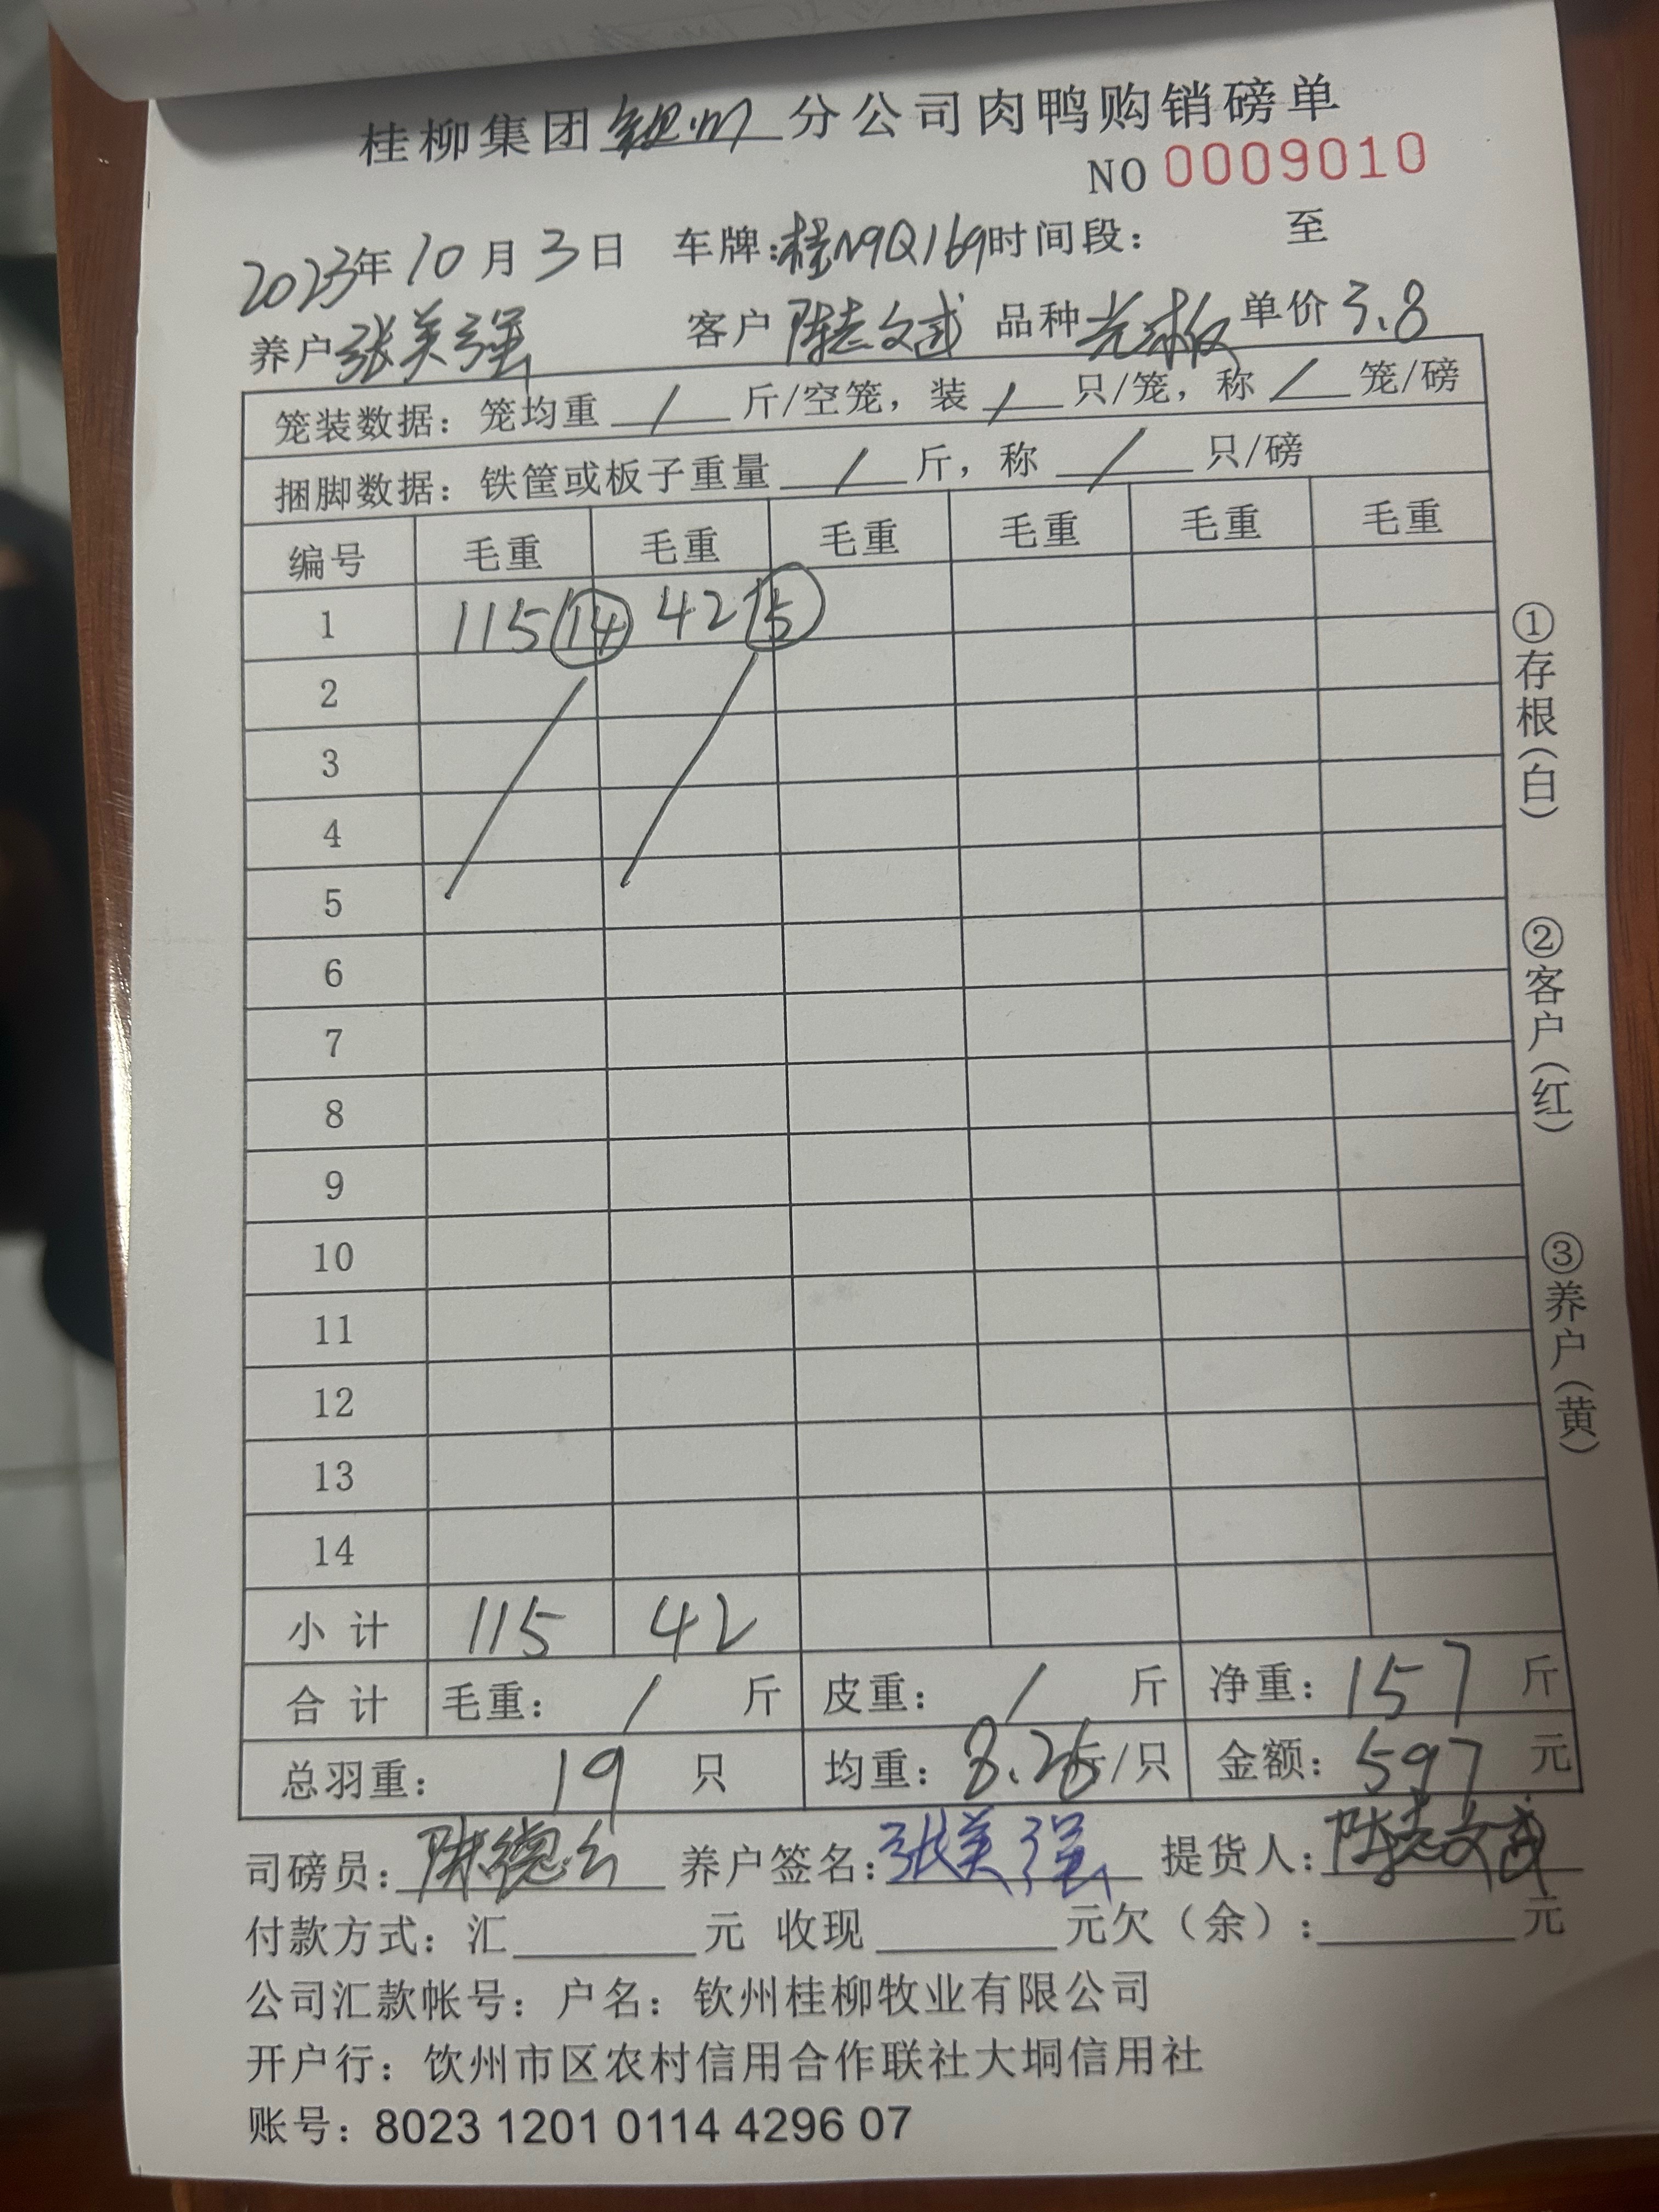 桂柳集团钦州分公司肉鸭购销磅单
NO 0009010
2023年10月3日 车牌:桂N9Q169时间段: 至
养户张美强 客户陈志文武 品种光板 单价3.8
笼装数据: 笼均重 / 斤/空笼, 装 / 只/笼, 称 / 笼/磅
捆脚数据: 铁筐或板子重量 / 斤, 称 / 只/磅
编号 毛重 毛重 毛重 毛重 毛重 毛重
1 115 14 42 5
2
3
4
5
6
7
8
9
10
11
12
13
14
小计 115 42
合计 毛重: / 斤 皮重: / 斤 净重: 157 斤
总羽重: 19 只 均重: 8.26斤/只 金额: 597 元
司磅员: 陈德 养户签名: 张美强 提货人: 陈志文武
付款方式: 汇 元 收现 元欠(余): 元
公司汇款帐号: 户名: 钦州桂柳牧业有限公司
开户行: 饮州市区农村信用合作联社大垌信用社
账号: 8023 1201 0114 4296 07
①存根(白)
②客户(红)
③养户(黄)